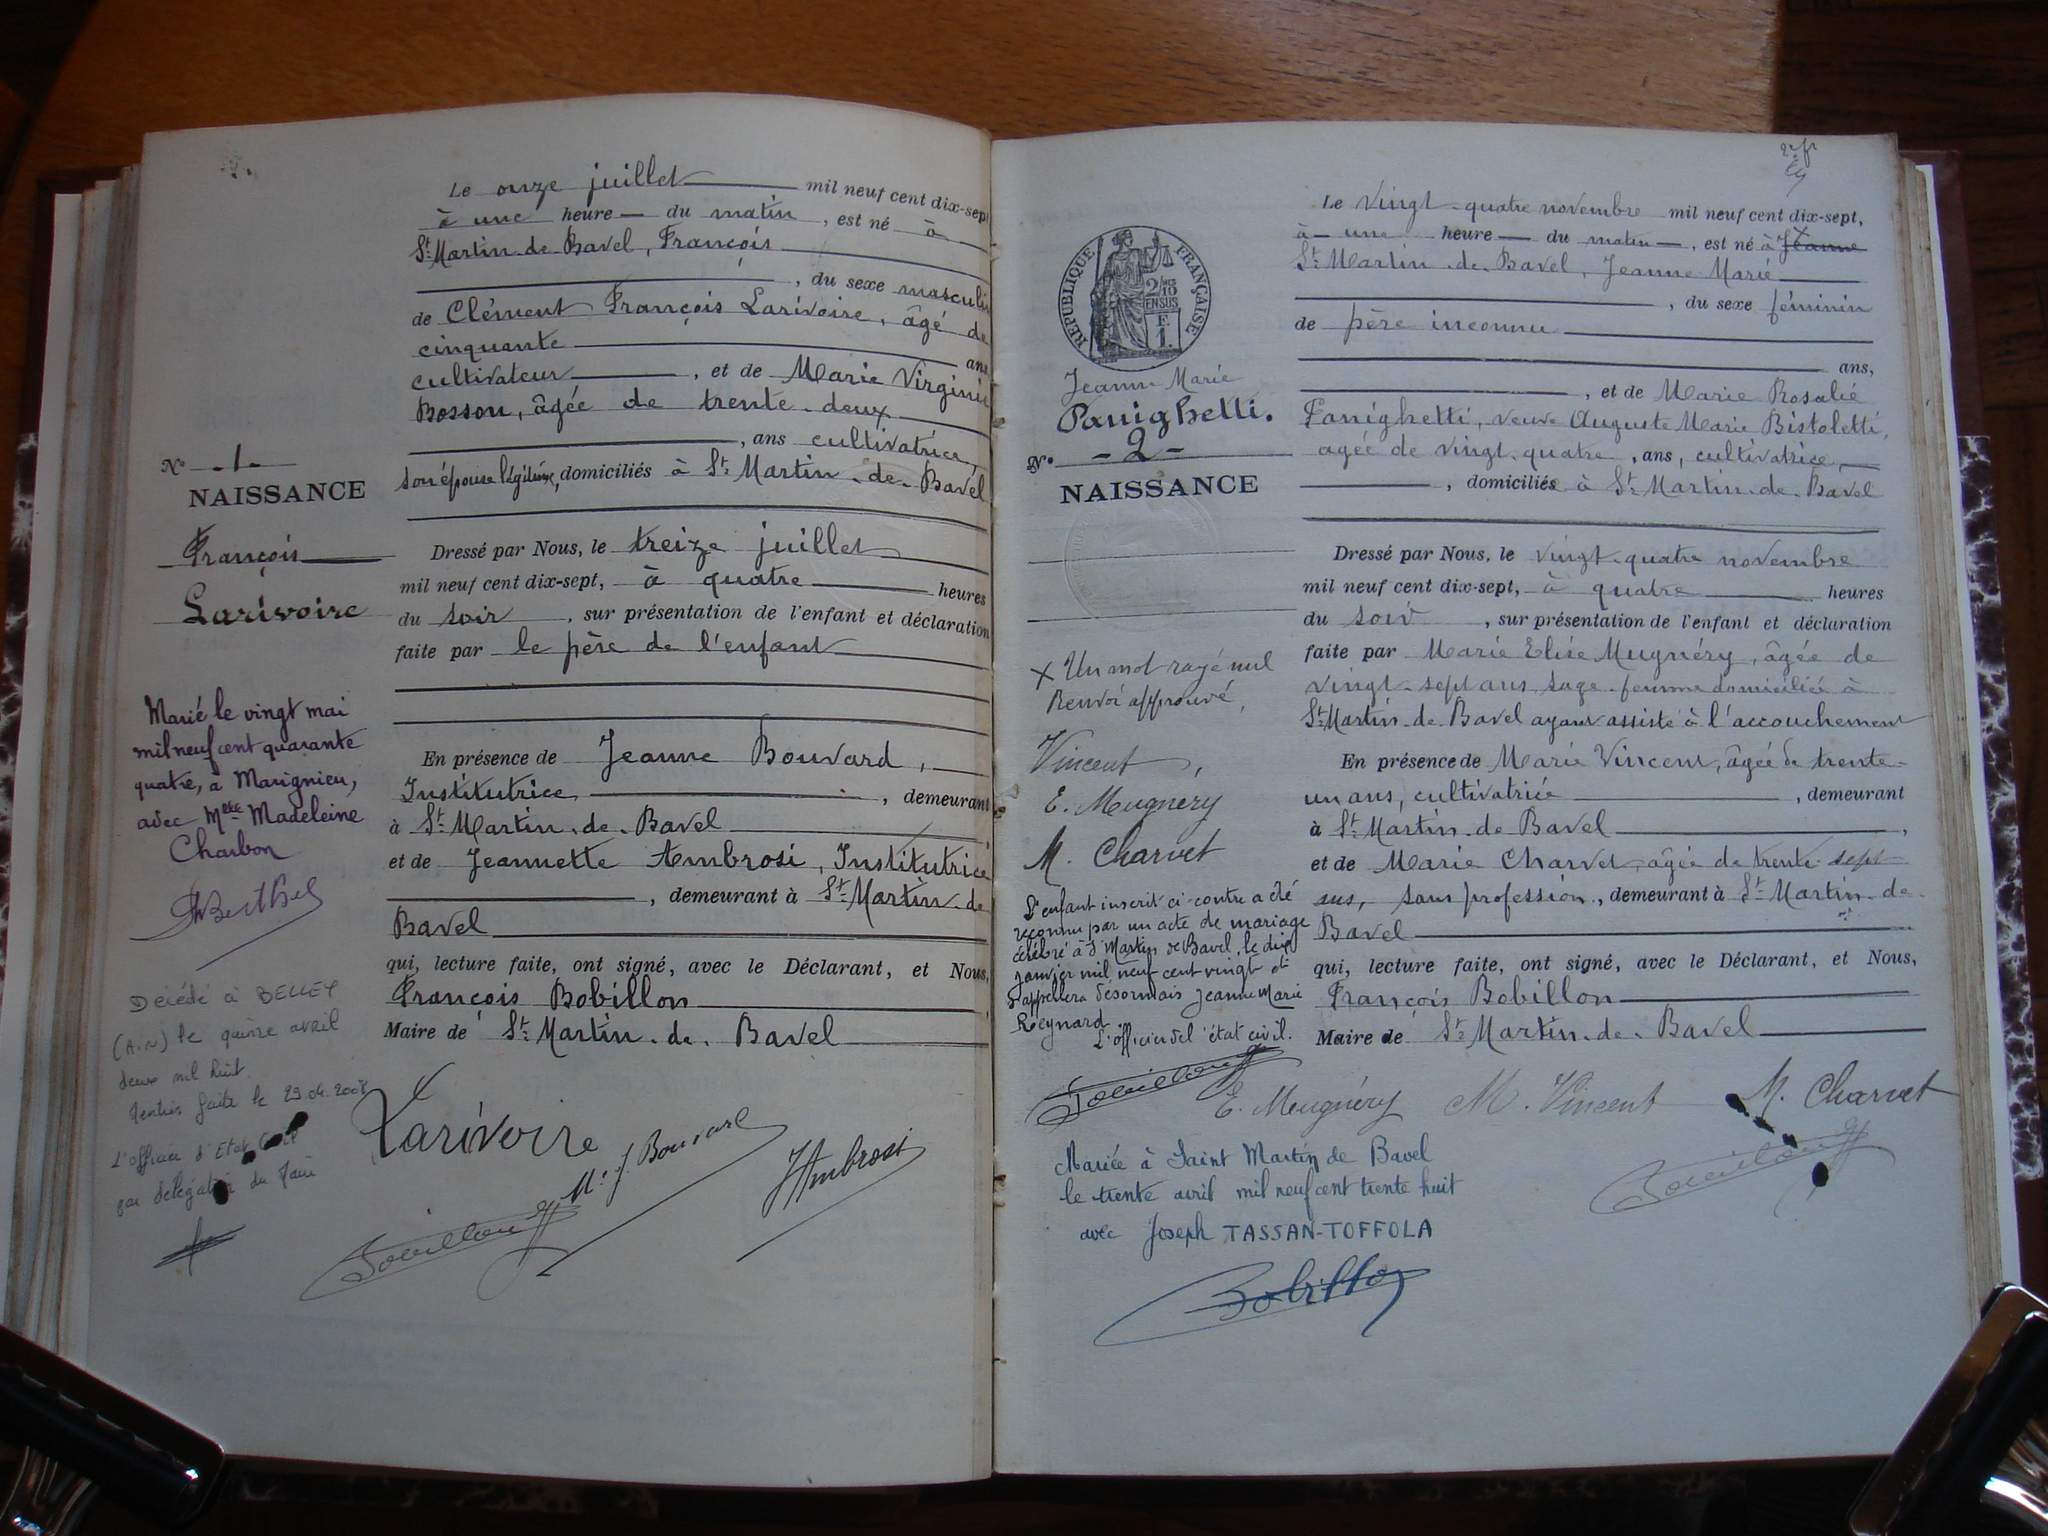 Le onze juillet mil neuf cent dix-sept
à une heure du matin, est né à
St Martin-de-Bavel, François
, du sexe masculin
de Clément François Larivoire, âgé de
cinquante ans
cultivateur, et de Marie Virginie
Bosson, âgée de trente-deux
, ans cultivatrice,
son épouse légitime, domiciliés à St Martin-de-Bavel
No -1-
NAISSANCE
François
Larivoire
Dressé par Nous, le treize juillet
mil neuf cent dix-sept, à quatre heures
du soir, sur présentation de l'enfant et déclaration
faite par le père de l'enfant
Marié le vingt mai
mil neuf cent quarante
quatre, à Marignieu,
avec Melle Madeleine
Charbon
Berthet
En présence de Jeanne Bouvard,
Institutrice, demeurant
à St Martin-de-Bavel
et de Jeannette Ambrosi, Institutrice
, demeurant à St Martin-de
Bavel
qui, lecture faite, ont signé, avec le Déclarant, et Nous,
François Bobillon
Maire de St Martin-de-Bavel
Décédé à BELLEY
(Ain) le quinze avril
deux mil huit.
Mention faite le 29.04.2008
L'officier d'Etat Civil
par délégation du Maire
Larivoire
M. J. Bouvard
JAmbrosi
Bobillon
2
Le vingt-quatre novembre mil neuf cent dix-sept,
à une heure du matin, est né à Jeanne X
St Martin-de-Bavel, Jeanne Marie
, du sexe féminin
de père inconnu
ans,
, et de Marie Rosalie
Panighetti, veuve Auguste Marie Bistoletti,
agée de vingt-quatre, ans, cultivatrice,
, domiciliés à St Martin-de-Bavel
RÉPUBLIQUE FRANÇAISE
2/10
EN SUS
F.
1.
Jeanne Marie
Panighetti.
No. -2-
NAISSANCE
Dressé par Nous, le vingt-quatre novembre
mil neuf cent dix-sept, à quatre heures
du soir, sur présentation de l'enfant et déclaration
faite par Marie Elise Mugnéry, âgée de
vingt-sept ans, sage-femme domiciliée à
St Martin-de-Bavel ayant assisté à l'accouchement
En présence de Marie Vincent, âgée de trente-
un ans, cultivatrice, demeurant
à St Martin-de-Bavel,
et de Marie Charvet, âgée de trente-sept
ans, sans profession, demeurant à St Martin-de-
Bavel
qui, lecture faite, ont signé, avec le Déclarant, et Nous,
François Bobillon
Maire de St Martin-de-Bavel
X Un mot rayé nul
Renvoi approuvé,
Vincent,
E. Mugnéry
M. Charvet
L'enfant inscrit ci-contre a été
reconnu par un acte de mariage
célébré à St Martin de Bavel, le dix
janvier mil neuf cent vingt et
s'appellera désormais Jeanne Marie
Reynard.
L'officier de l'état civil.
Bobillon
E. Mugnéry M. Vincent M. Charvet
Bobillon
Mariée à Saint Martin de Bavel
le trente avril mil neuf cent trente huit
avec Joseph TASSAN-TOFFOLA
Bobillon